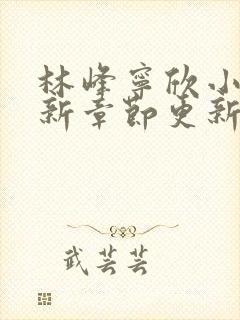 林峰寧欣小
新章節更新
武芸芸